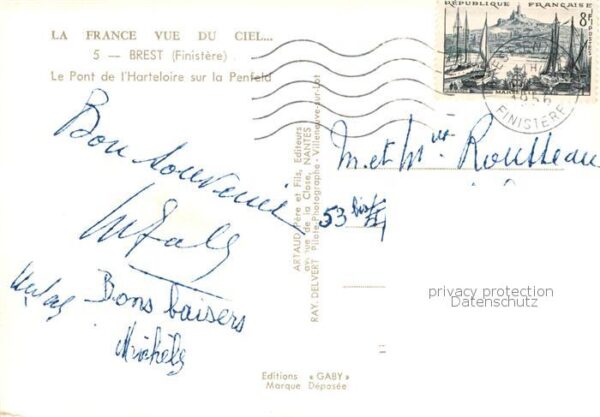 LA FRANCE VUE DU CIEL...
5 — BREST (Finistère)
Le Pont de l'Harteloire sur la Penfeld
RÉPUBLIQUE FRANÇAISE
8F
MARSEILLE
FINISTÈRE
Bon souvenir
Bons baisers
Michèle
ARTAUD Père et Fils, Editeurs
de la Close, NANTES
RAY. DELVERT Pilote-Photographe - Villeneuve-sur-Lot
M. et Mme Rousseau
53 bis
privacy protection
Datenschutz
Editions « GABY »
Marque Déposée